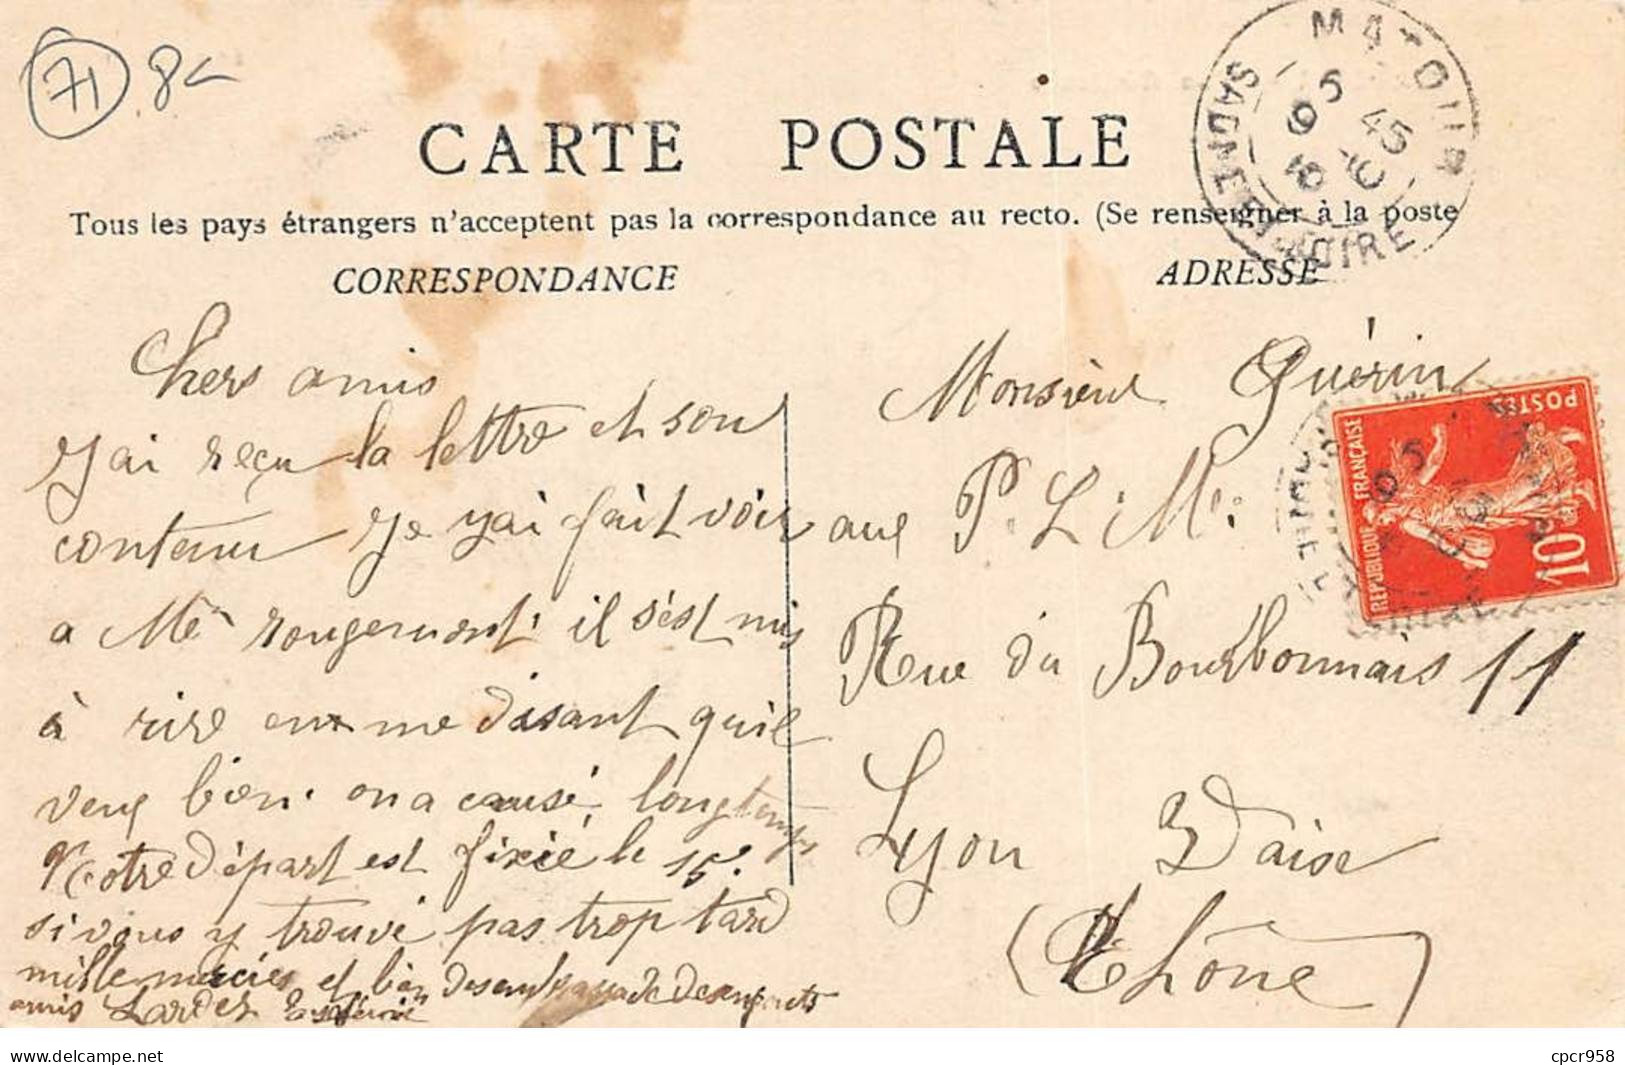 71 8
CARTE POSTALE
Tous les pays étrangers n'acceptent pas la correspondance au recto. (Se renseigner à la poste
CORRESPONDANCE
ADRESSE
MATOUR
SAONE ET LOIRE
Chers amis
j'ai reçu la lettre et son
contenu je j'ai fait voir
a Me rougemont il s'est mis
à rire en me disant qu'il
veux bien on a causé longtemps
Notre départ est fixié le 15e.
si vous y trouvé pas trop tard
mille mercies et bien des
amis Lardet
Monsieur Guérin
aux P. L. M.
Rue du Bourbonnais 11
Lyon Vaise
(Rhône)
REPUBLIQUE FRANÇAISE
POSTES
10
www.delcampe.net
cpcr958